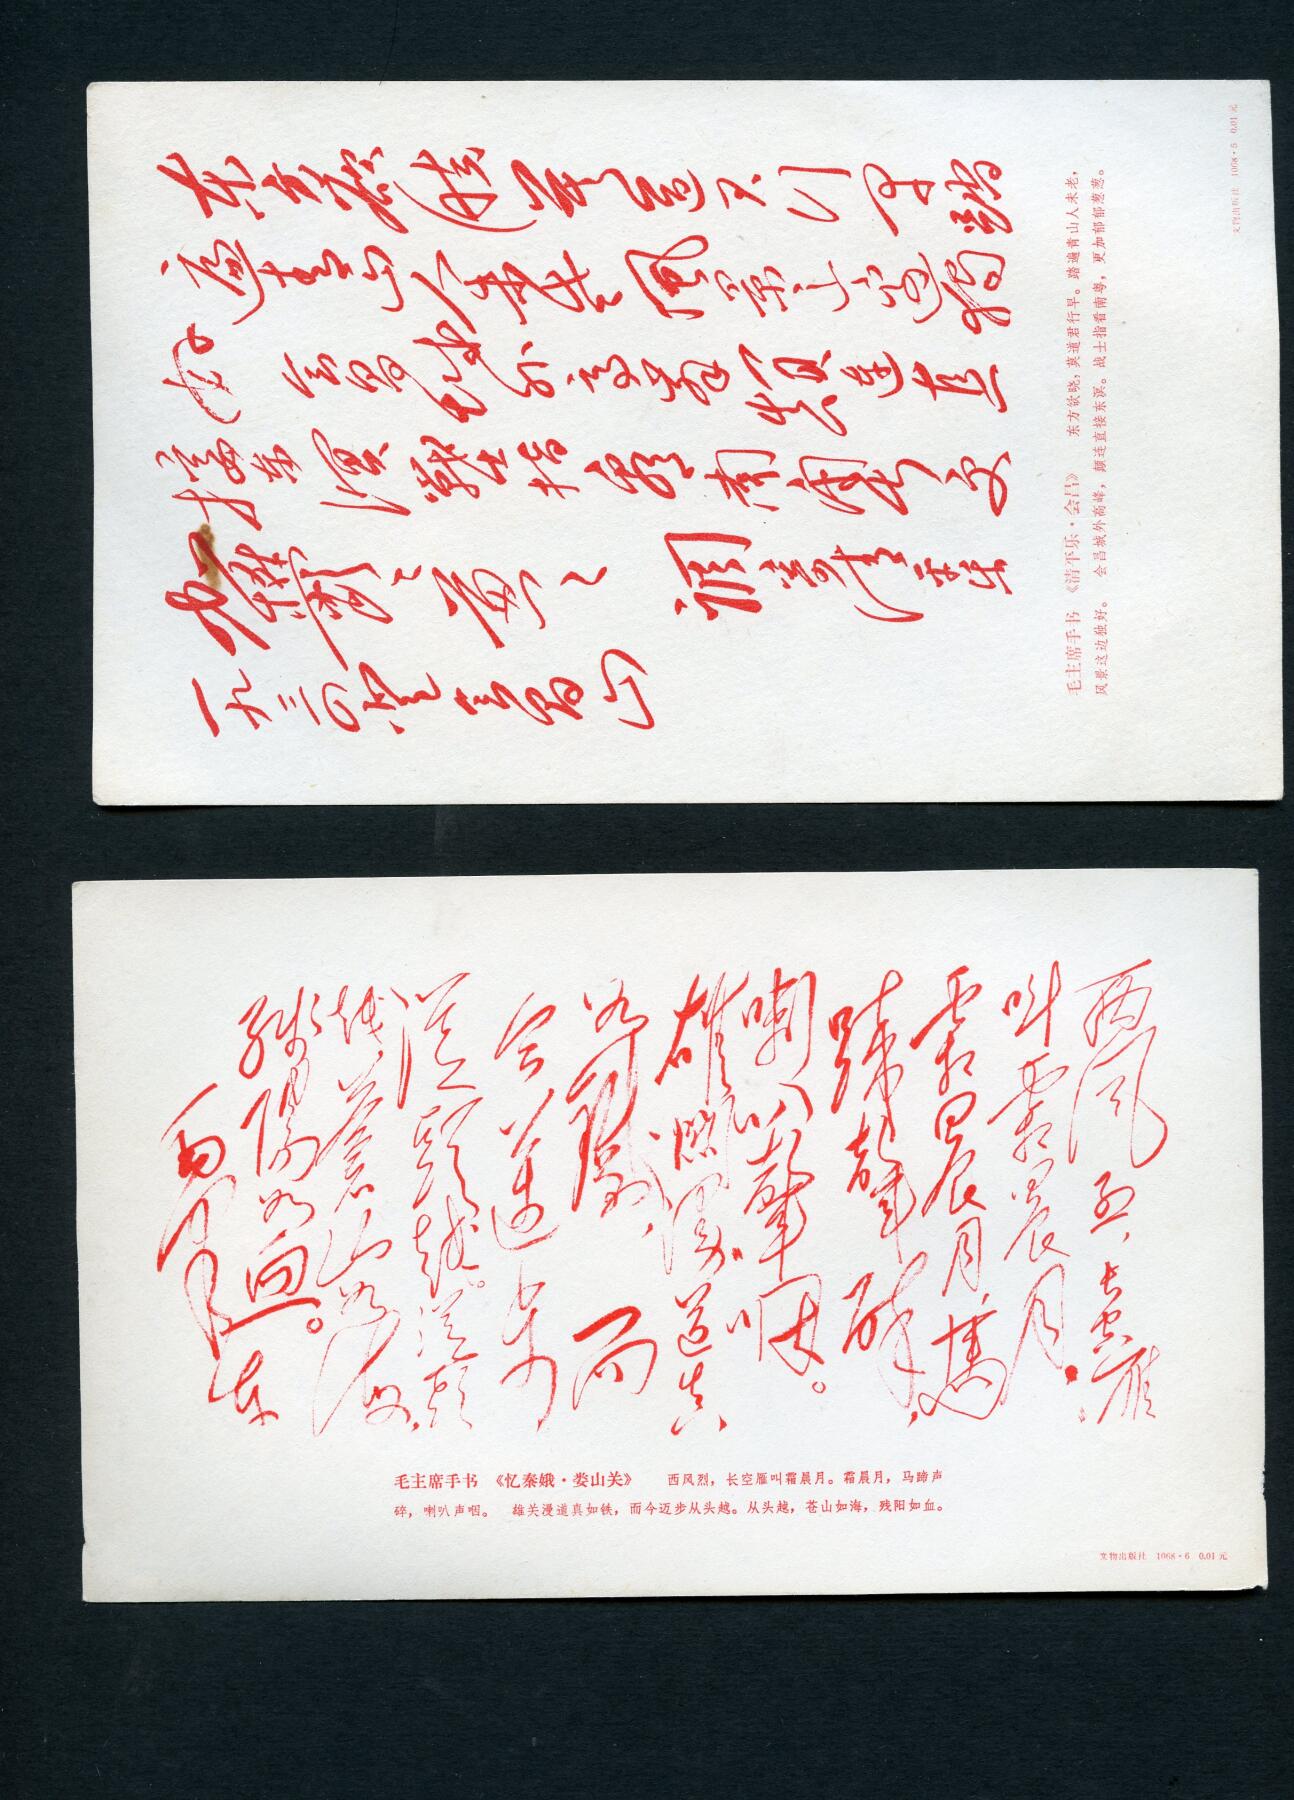 东方欲晓莫道君行早踏
遍青山人未老風景这边独
好會昌城外高峰颠连直
接东溟戰士指看南粤更
加鬱々葱々
調寄清平乐
一九三四
會昌山
毛主席手书 《清平乐·会昌》 东方欲晓,莫道君行早。踏遍青山人未老,
风景这边独好。 会昌城外高峰,颠连直接东溟。战士指看南粤,更加郁郁葱葱。
文物出版社 1068·5 0.01元
西风烈,长空雁
叫霜晨月。
霜晨月,馬
蹄聲碎,
喇叭聲咽。
雄关漫道真
如鐵,而
今迈步
從頭越。從頭
越,蒼山如海,
残陽如血。
毛主席手书 《忆秦娥·娄山关》 西风烈,长空雁叫霜晨月。霜晨月,马蹄声
碎,喇叭声咽。 雄关漫道真如铁,而今迈步从头越。从头越,苍山如海,残阳如血。
文物出版社 1068·6 0.01元